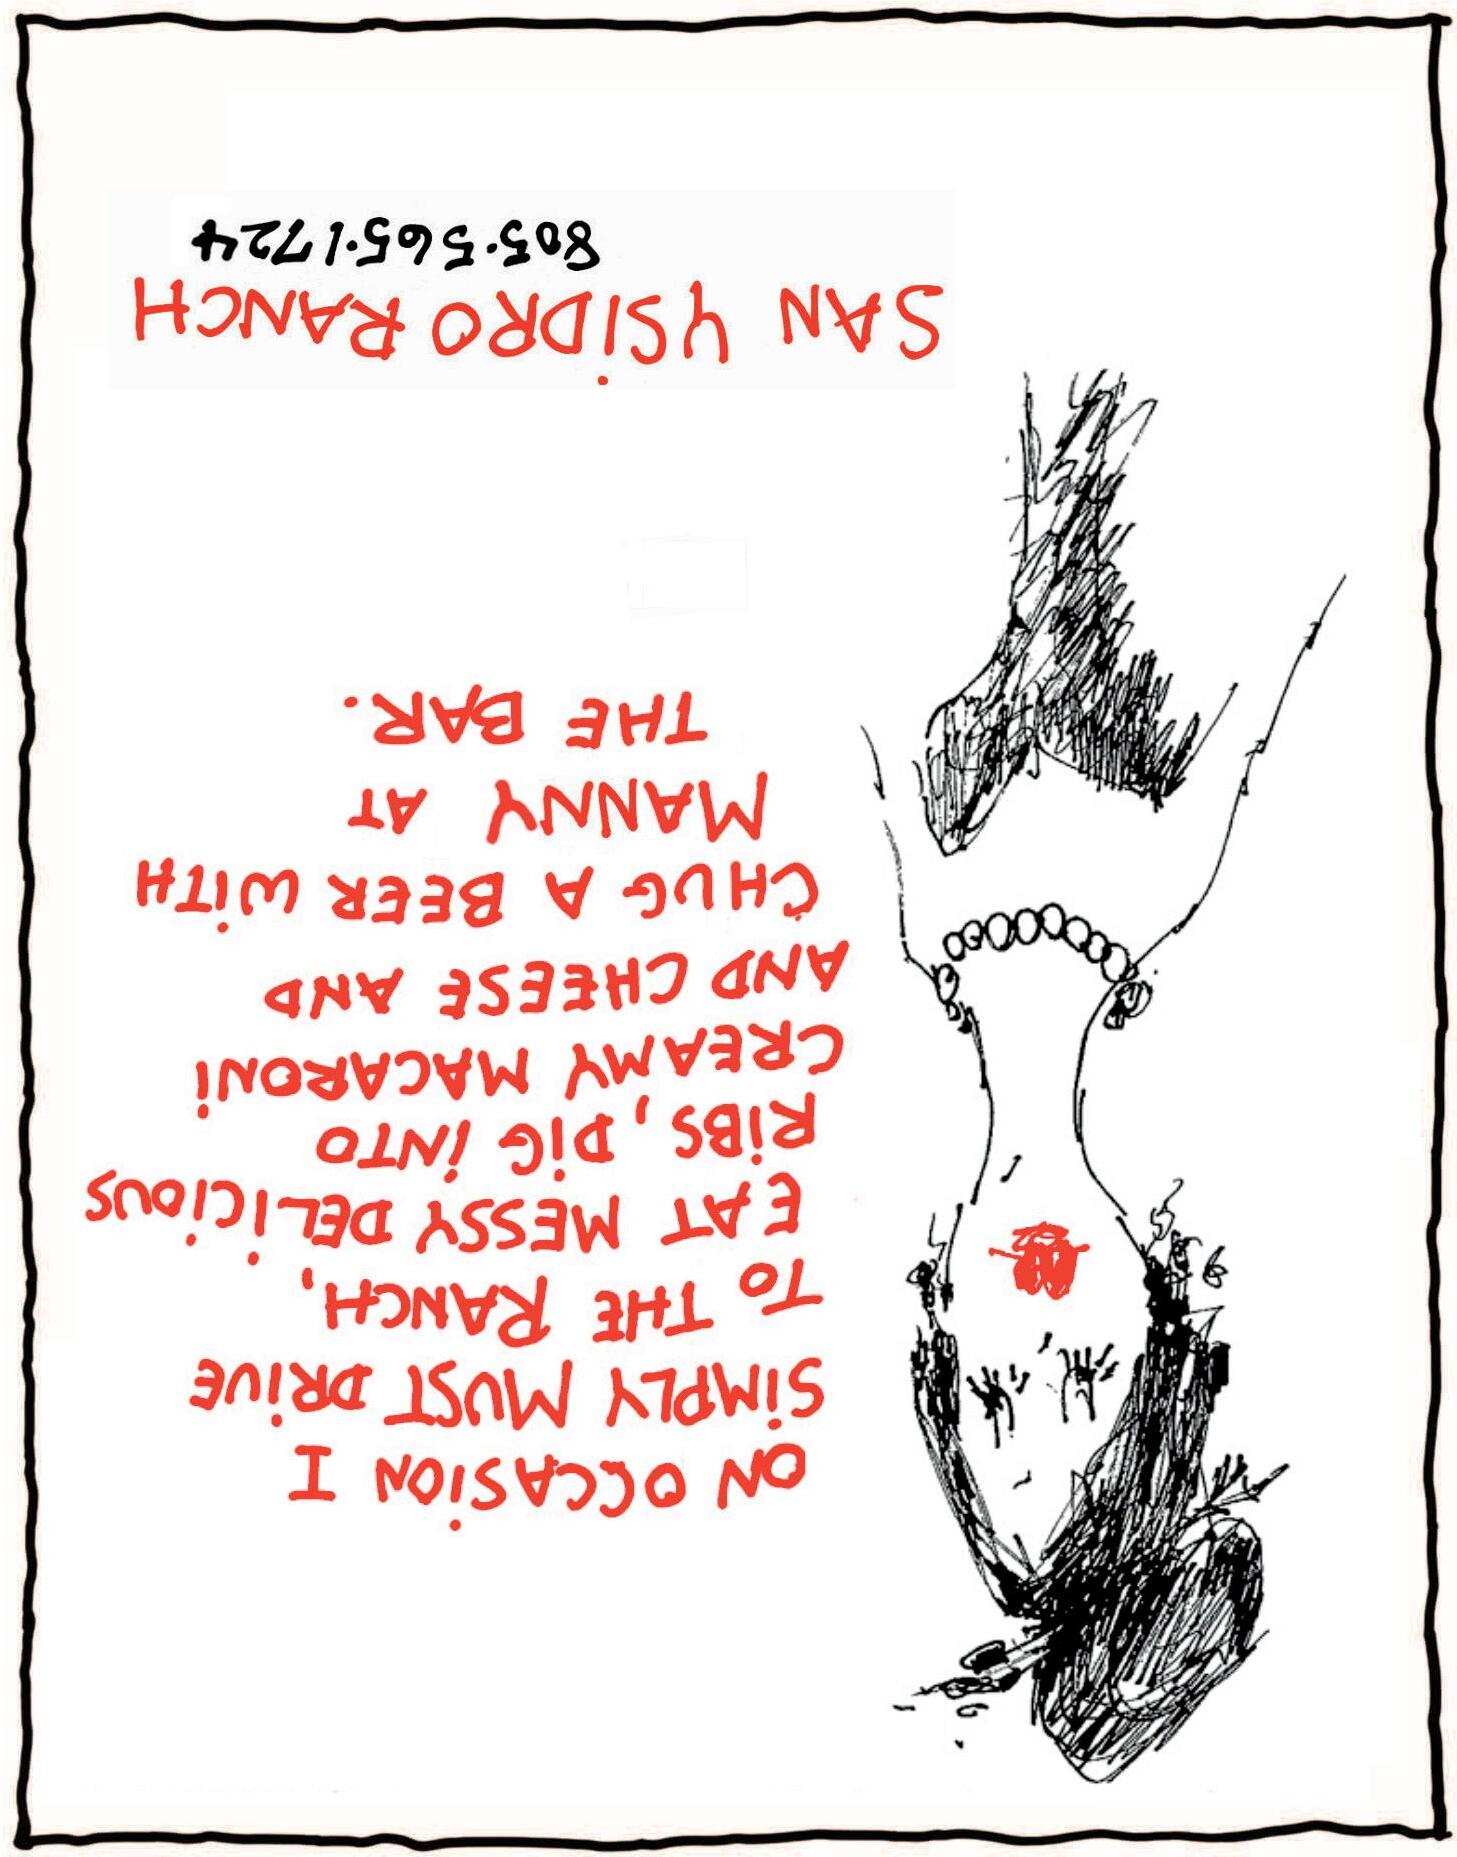 ON OCCASION I
SiMPLY MUST DRiVE
TO THE RANCH,
EAT MESSY DELiCiOUS
RiBS, DiG iNTO
CREAMY MACARONi
AND CHEESE AND
CHUG A BEER WiTH
MANNY AT
THE BAR.
SAN YSiDRO RANCH
805·565·1724